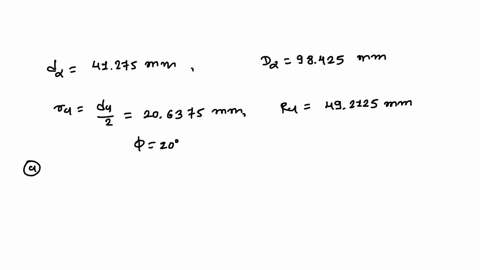 d₂ = 41.275 mm, D₂ = 98.425 mm
r₄ = d₄/2 = 20.6375 mm, R₄ = 49.2125 mm
ϕ = 20°
a